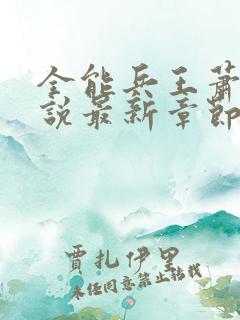 全能兵王蕭
說最新章節
賈扎伊里
未经同意禁止转载